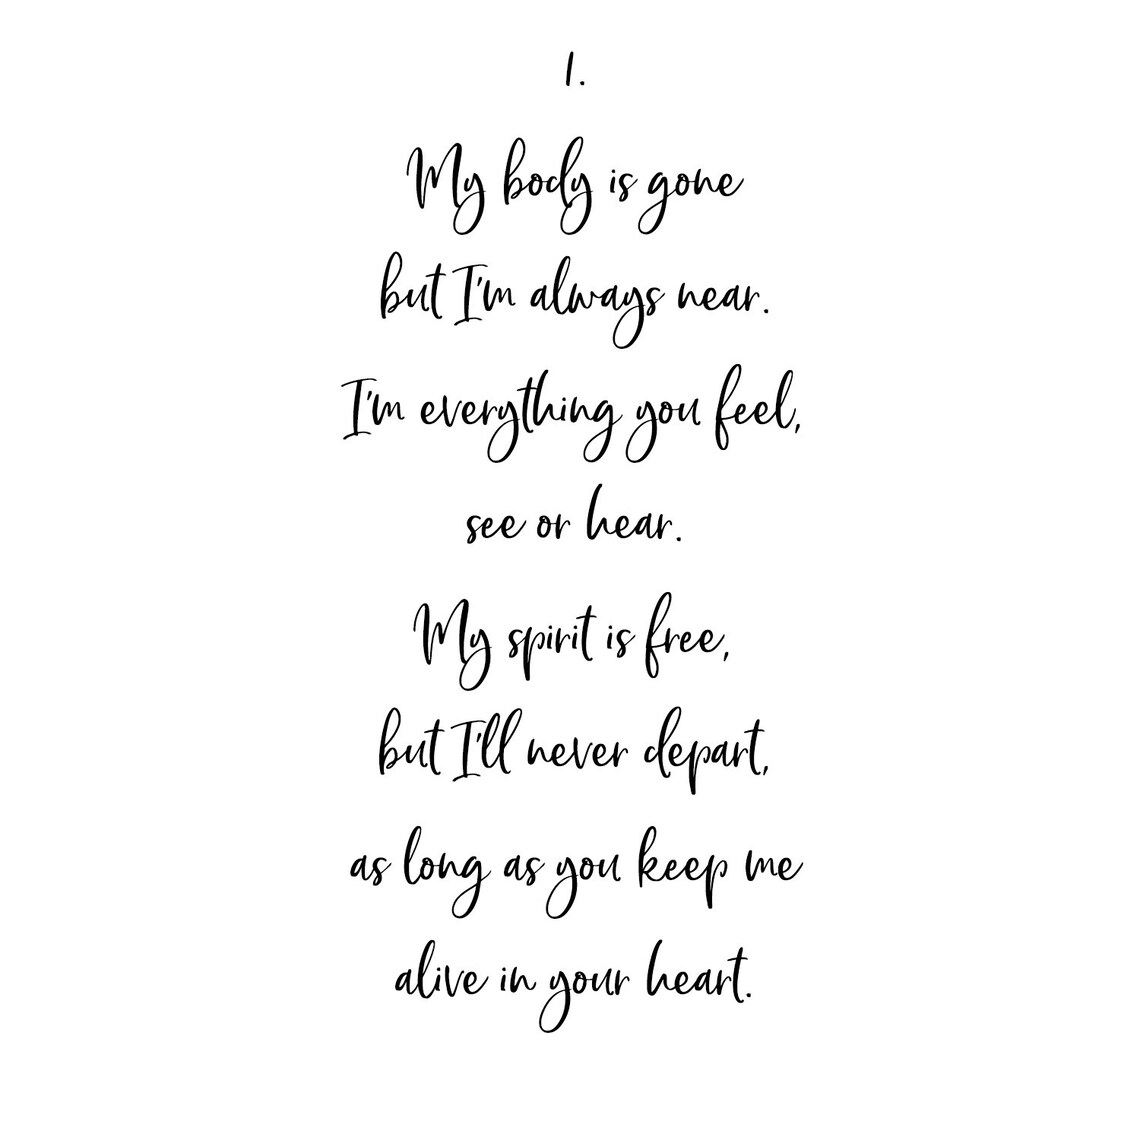 1.
My body is gone
but I'm always near.
I'm everything you feel,
see or hear.
My spirit is free,
but I'll never depart,
as long as you keep me
alive in your heart.